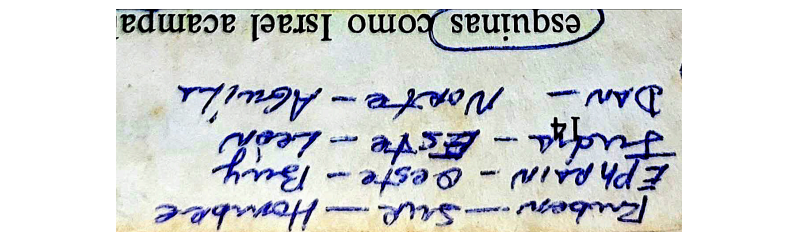 Ruben - Sur - Hombre
EPhRAIN - Oeste - Buey
Judá - Este - León
14
DAN - Norte - Aguila
esquinas como Israel acampa